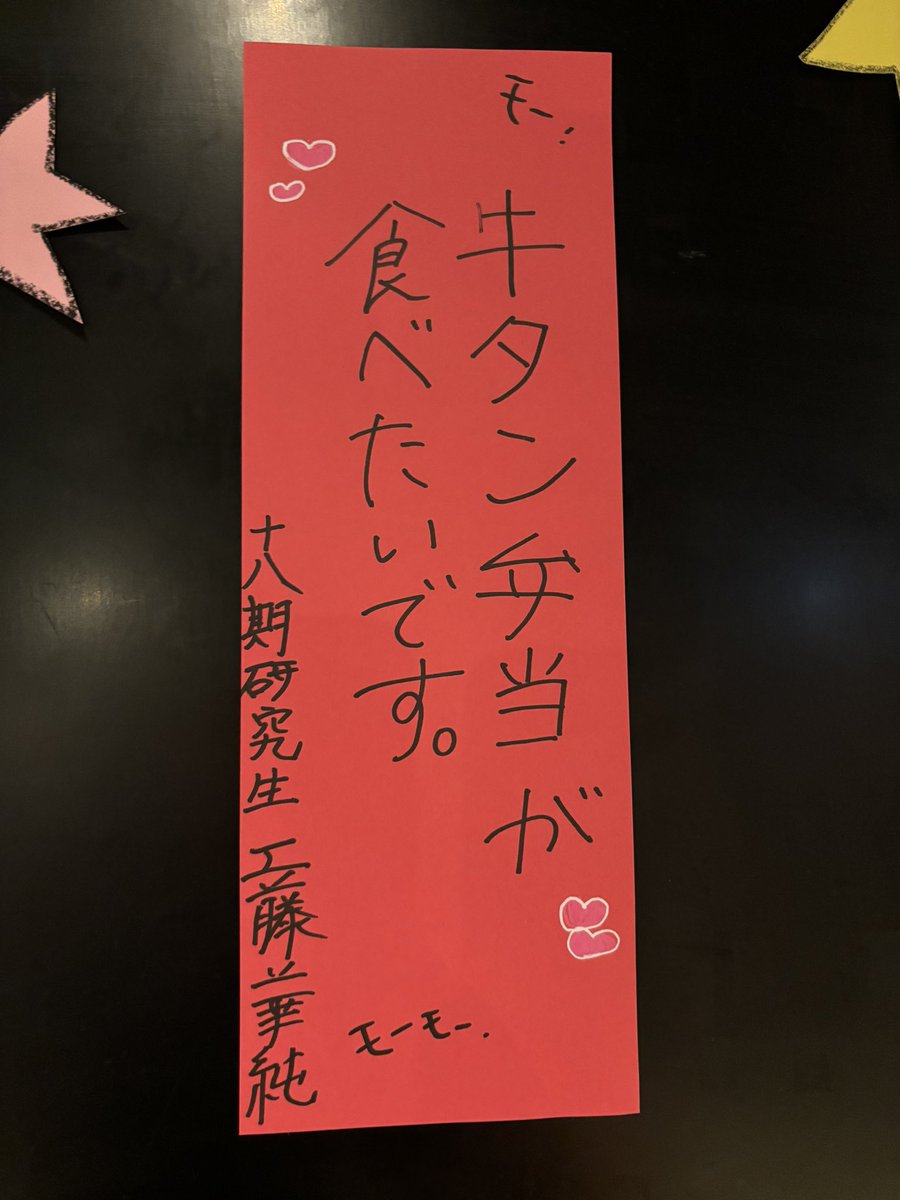 モー!
牛タン弁当が
食べたいです。
モーモー.
十八期研究生 工藤華純